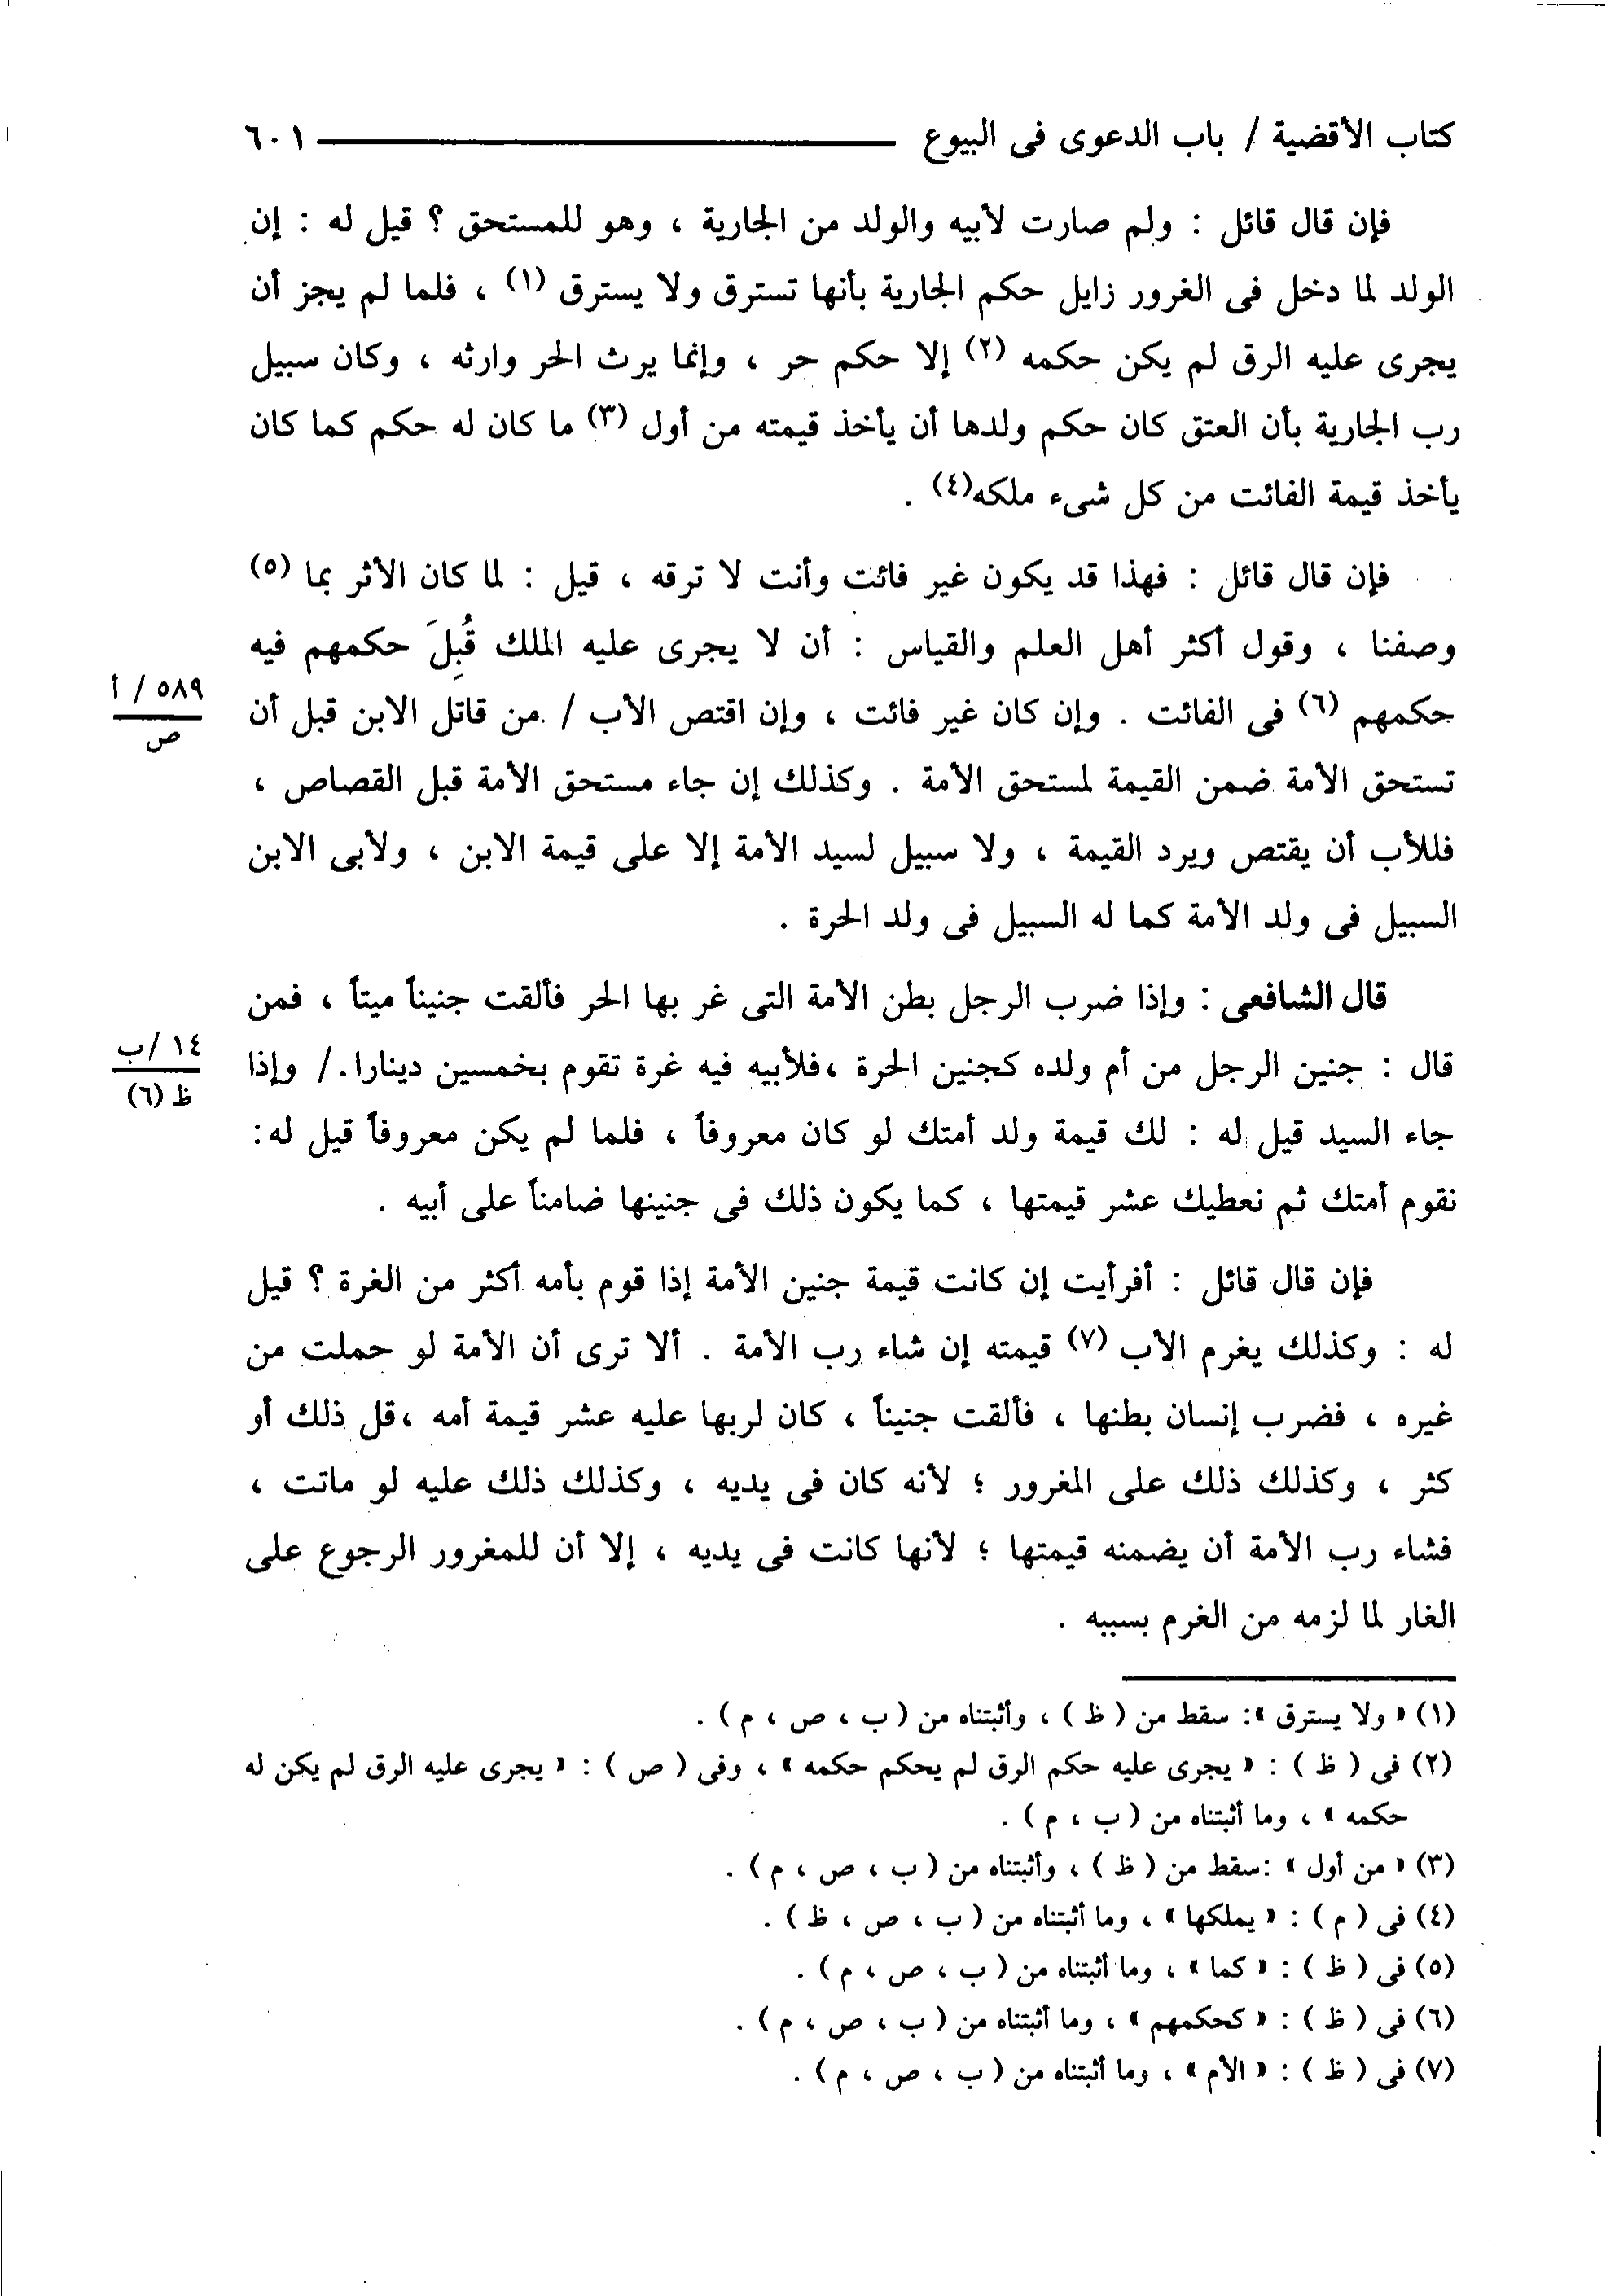 كتاب الأقضية / باب الدعوى فى البيوع ٦٠١
فإن قال قائل : ولم صارت لأبيه والولد من الجارية ، وهو للمستحق ؟ قيل له : إن
الولد لما دخل فى الغرور زايل حكم الجارية بأنها تسترق ولا يسترق (١) ، فلما لم يجز أن
يجرى عليه الرق لم يكن حكمه (٢) إلا حكم حر ، وإنما يرث الحر وارثه ، وكان سبيل
رب الجارية بأن العتق كان حكم ولدها أن يأخذ قيمته من أول (٣) ما كان له حكم كما كان
يأخذ قيمة الفائت من كل شىء ملكه(٤) .
فإن قال قائل : فهذا قد يكون غير فائت وأنت لا ترقه ، قيل : لما كان الأثر بما (٥)
وصفنا ، وقول أكثر أهل العلم والقياس : أن لا يجرى عليه الملك قُبِلَ حكمهم فيه
حكمهم (٦) فى الفائت . وإن كان غير فائت ، وإن اقتص الأب / من قاتل الابن قبل أن
٥٨٩ / أ
ص
تستحق الأمة ضمن القيمة لمستحق الأمة . وكذلك إن جاء مستحق الأمة قبل القصاص ،
فللأب أن يقتص ويرد القيمة ، ولا سبيل لسيد الأمة إلا على قيمة الابن ، ولأبى الابن
السبيل فى ولد الأمة كما له السبيل فى ولد الحرة .
قال الشافعى : وإذا ضرب الرجل بطن الأمة التى غر بها الحر فألقت جنيناً ميتاً ، فمن
قال : جنين الرجل من أم ولده كجنين الحرة ،فلأبيه فيه غرة تقوم بخمسين دينارا. / وإذا
١٤ /ب
ظ (٦)
جاء السيد قيل له : لك قيمة ولد أمتك لو كان معروفاً ، فلما لم يكن معروفاً قيل له:
نقوم أمتك ثم نعطيك عشر قيمتها ، كما يكون ذلك فى جنينها ضامناً على أبيه .
فإن قال قائل : أفرأيت إن كانت قيمة جنين الأمة إذا قوم بأمه أكثر من الغرة ؟ قيل
له : وكذلك يغرم الأب (٧) قيمته إن شاء رب الأمة . ألا ترى أن الأمة لو حملت من
غيره ، فضرب إنسان بطنها ، فألقت جنيناً ، كان لربها عليه عشر قيمة أمه ،قل ذلك أو
كثر ، وكذلك ذلك على المغرور ؛ لأنه كان فى يديه ، وكذلك ذلك عليه لو ماتت ،
فشاء رب الأمة أن يضمنه قيمتها ؛ لأنها كانت فى يديه ، إلا أن للمغرور الرجوع على
الغار لما لزمه من الغرم بسببه .
(١) « ولا يسترق »: سقط من ( ظ ) ، وأثبتناه من ( ب ، ص ، م ) .
(٢) فى ( ظ ) : « يجرى عليه حكم الرق لم يحكم حكمه » ، وفى ( ص ) : « يجرى عليه الرق لم يكن له
حكمه » ، وما أثبتناه من ( ب ، م ) .
(٣) « من أول » :سقط من ( ظ ) ، وأثبتناه من ( ب ، ص ، م ) .
(٤) فى ( م ) : « يملكها » ، وما أثبتناه من ( ب ، ص ، ظ ) .
(٥) فى ( ظ ) : « كما » ، وما أثبتناه من ( ب ، ص ، م ) .
(٦) فى ( ظ ) : « كحكمهم » ، وما أثبتناه من ( ب ، ص ، م ) .
(٧) فى ( ظ ) : « الأم » ، وما أثبتناه من ( ب ، ص ، م ) .